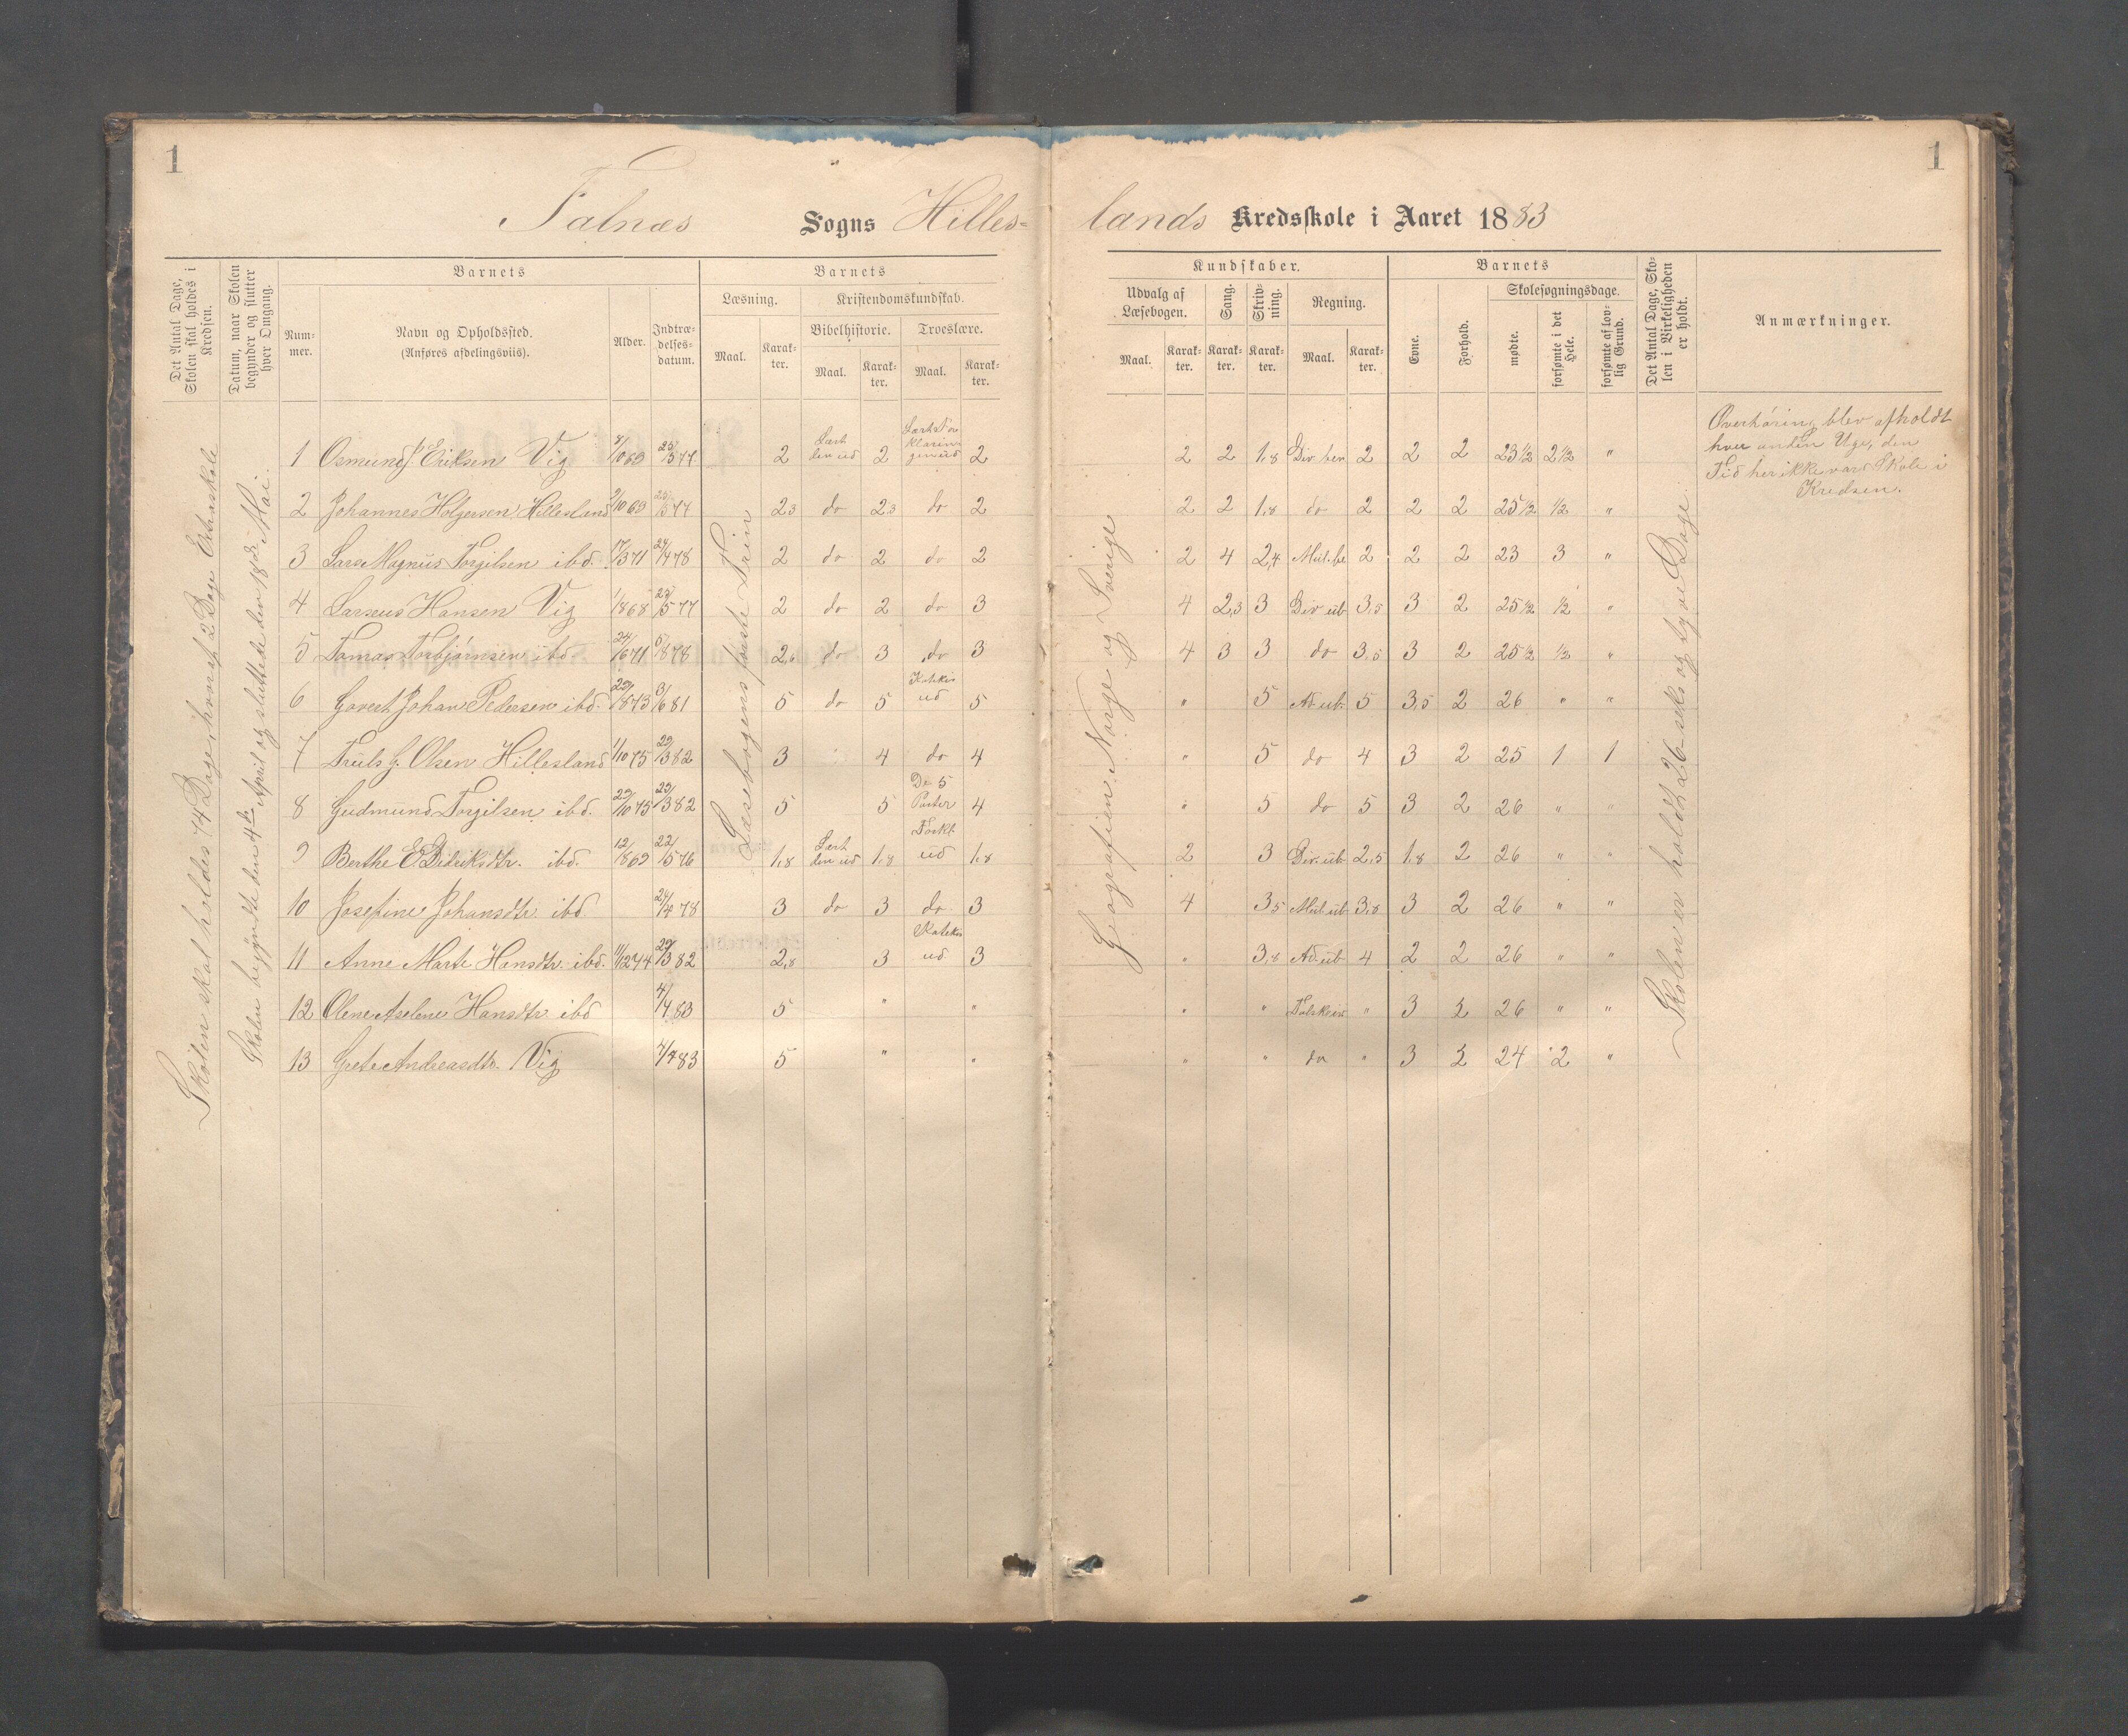 1
1
Falnæs Sogns Hilles-
lands Kredsskole i Aaret 1883
Det Antal Dage, Skolen skal holdes i Kredsen.
Datum, naar Skolen begynder og slutter hver Omgang.
Barnets
Nummer.
Navn og Opholdssted.
(Anføres afdelingsviis).
Alder.
Indtrædelsesdatum.
Barnets
Læsning.
Maal.
Karakter.
Kristendomskundskab.
Bibelhistorie.
Maal.
Karakter.
Troeslære.
Maal.
Karakter.
Kundskaber.
Udvalg af Læsebogen.
Maal.
Karakter.
Sang.
Karakter.
Skrivning.
Karakter.
Regning.
Maal.
Karakter.
Barnets
Evne.
Forhold.
Skolesøgningsdage.
mødte.
forsømte i det Hele.
forsømte af lovlig Grund.
Det Antal Dage, Skolen i Virkeligheden er holdt.
Anmærkninger.
Skolen skal holdes 74 Dage, hvoraf 2 Dage Extraskole
Skolen begyndte den 4de April og sluttede den 18de Mai.
Læsebogens første Trin
Geografien: Norge og Sverige
Skolen er holdt 26 seks og tyve Dage
1 Osmund J. Eriksen Vig 8/10 69 25/5 77 2 Lært den ud 2 Lært Forklaringen ud 2 2 2 1,8 Div. ben 2 2 2 23 1/2 2 1/2 "
2 Johannes Holgersen Hillesland 9/10 69 25/5 77 2,3 do 2,3 do 2 2 2 1,8 do 2 2 2 25 1/2 1/2 "
3 Lars Magnus Torgilsen ibd. 17/3 71 24/4 78 2 do 2 do 2 2 4 2,4 Mul. be 2 2 2 23 3 "
4 Larseus Hansen Vig 1/8 68 25/5 77 2 do 2 do 3 4 2,3 3 Div ub 3,5 3 2 25 1/2 1/2 "
5 Tomas Torbjørnsen ibd. 24/6 71 5/8 78 2,6 do 3 do 3 4 3 3 do 3,5 3 2 25 1/2 1/2 "
6 Govert Johan Pedersen ibd. 29/8 73 3/6 81 5 do 5 Katekis ud 5 " 5 Ad. ub. 5 3,5 2 26 " "
7 Truls G. Olsen Hillesland 1/10 75 29/3 82 3 4 do 4 " 5 do 4 3 2 25 1 1
8 Gudmund Torgilsen ibd. 29/10 75 29/3 82 5 5 De 5 Parter 4 " 5 do 5 3 2 26 " "
9 Berthe E. Didriksdtr. ibd. 12/8 69 22/5 76 1,8 Lært den ud 1,8 Forkl. ud 1,8 2 3 Div. ub 2,5 1,8 2 26 " "
10 Josefine Johansdtr. ibd. 24/4 78 3 do 3 do 3 4 3,5 Mul. ub 3,8 3 2 26 " "
11 Anne Marte Hansdtr. ibd. 11/12 74 29/3 82 2,8 3 Katekis ud 3 " 3,8 Ad. ub 4 2 2 26 " "
12 Olene Aselene Hansdtr. ibd 4/4 83 5 " " " " " 3 2 26 " "
13 Grete Andreasdtr. Vig 4/4 83 5 " " " " do " 3 2 24 2 "
Overhøring blev afholdt
hver anden Uge, den
Tid her ikke var Skole i
Kredsen.